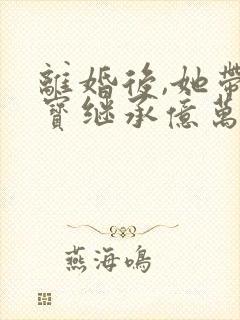 離婚後,她帶
寶继承億萬
燕海鳴